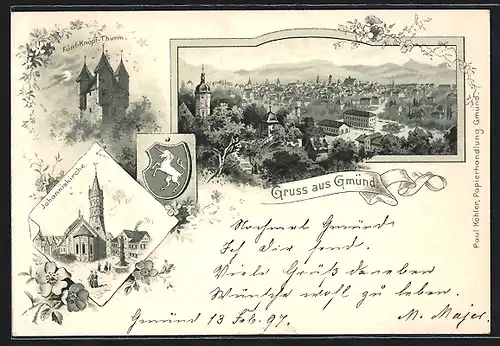 Fünf-Knopf-Thurm.
Johanniskirche.
Gruss aus Gmünd.
Paul Köhler, Papierhandlung Gmünd.
Nochmal Gmünd
Ich dir send.
Viele Grüß daneben
Wünsche wohl zu leben.
Gmünd 13 Feb. 97.
M. Majer